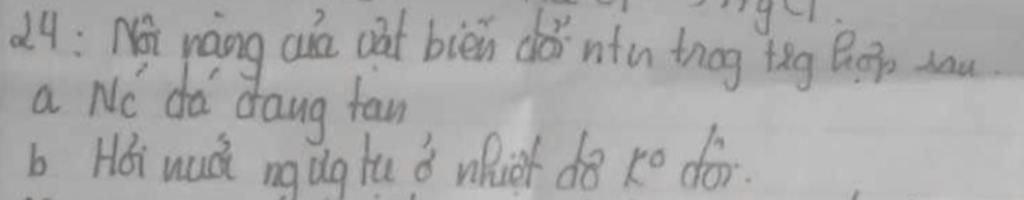 24: Nội năng của vật biến đổi ntn trog tžg hợp sau.
a Nć đá đang tan
b Hơi nước ngưng tụ ở nhiệt độ k° đổi.